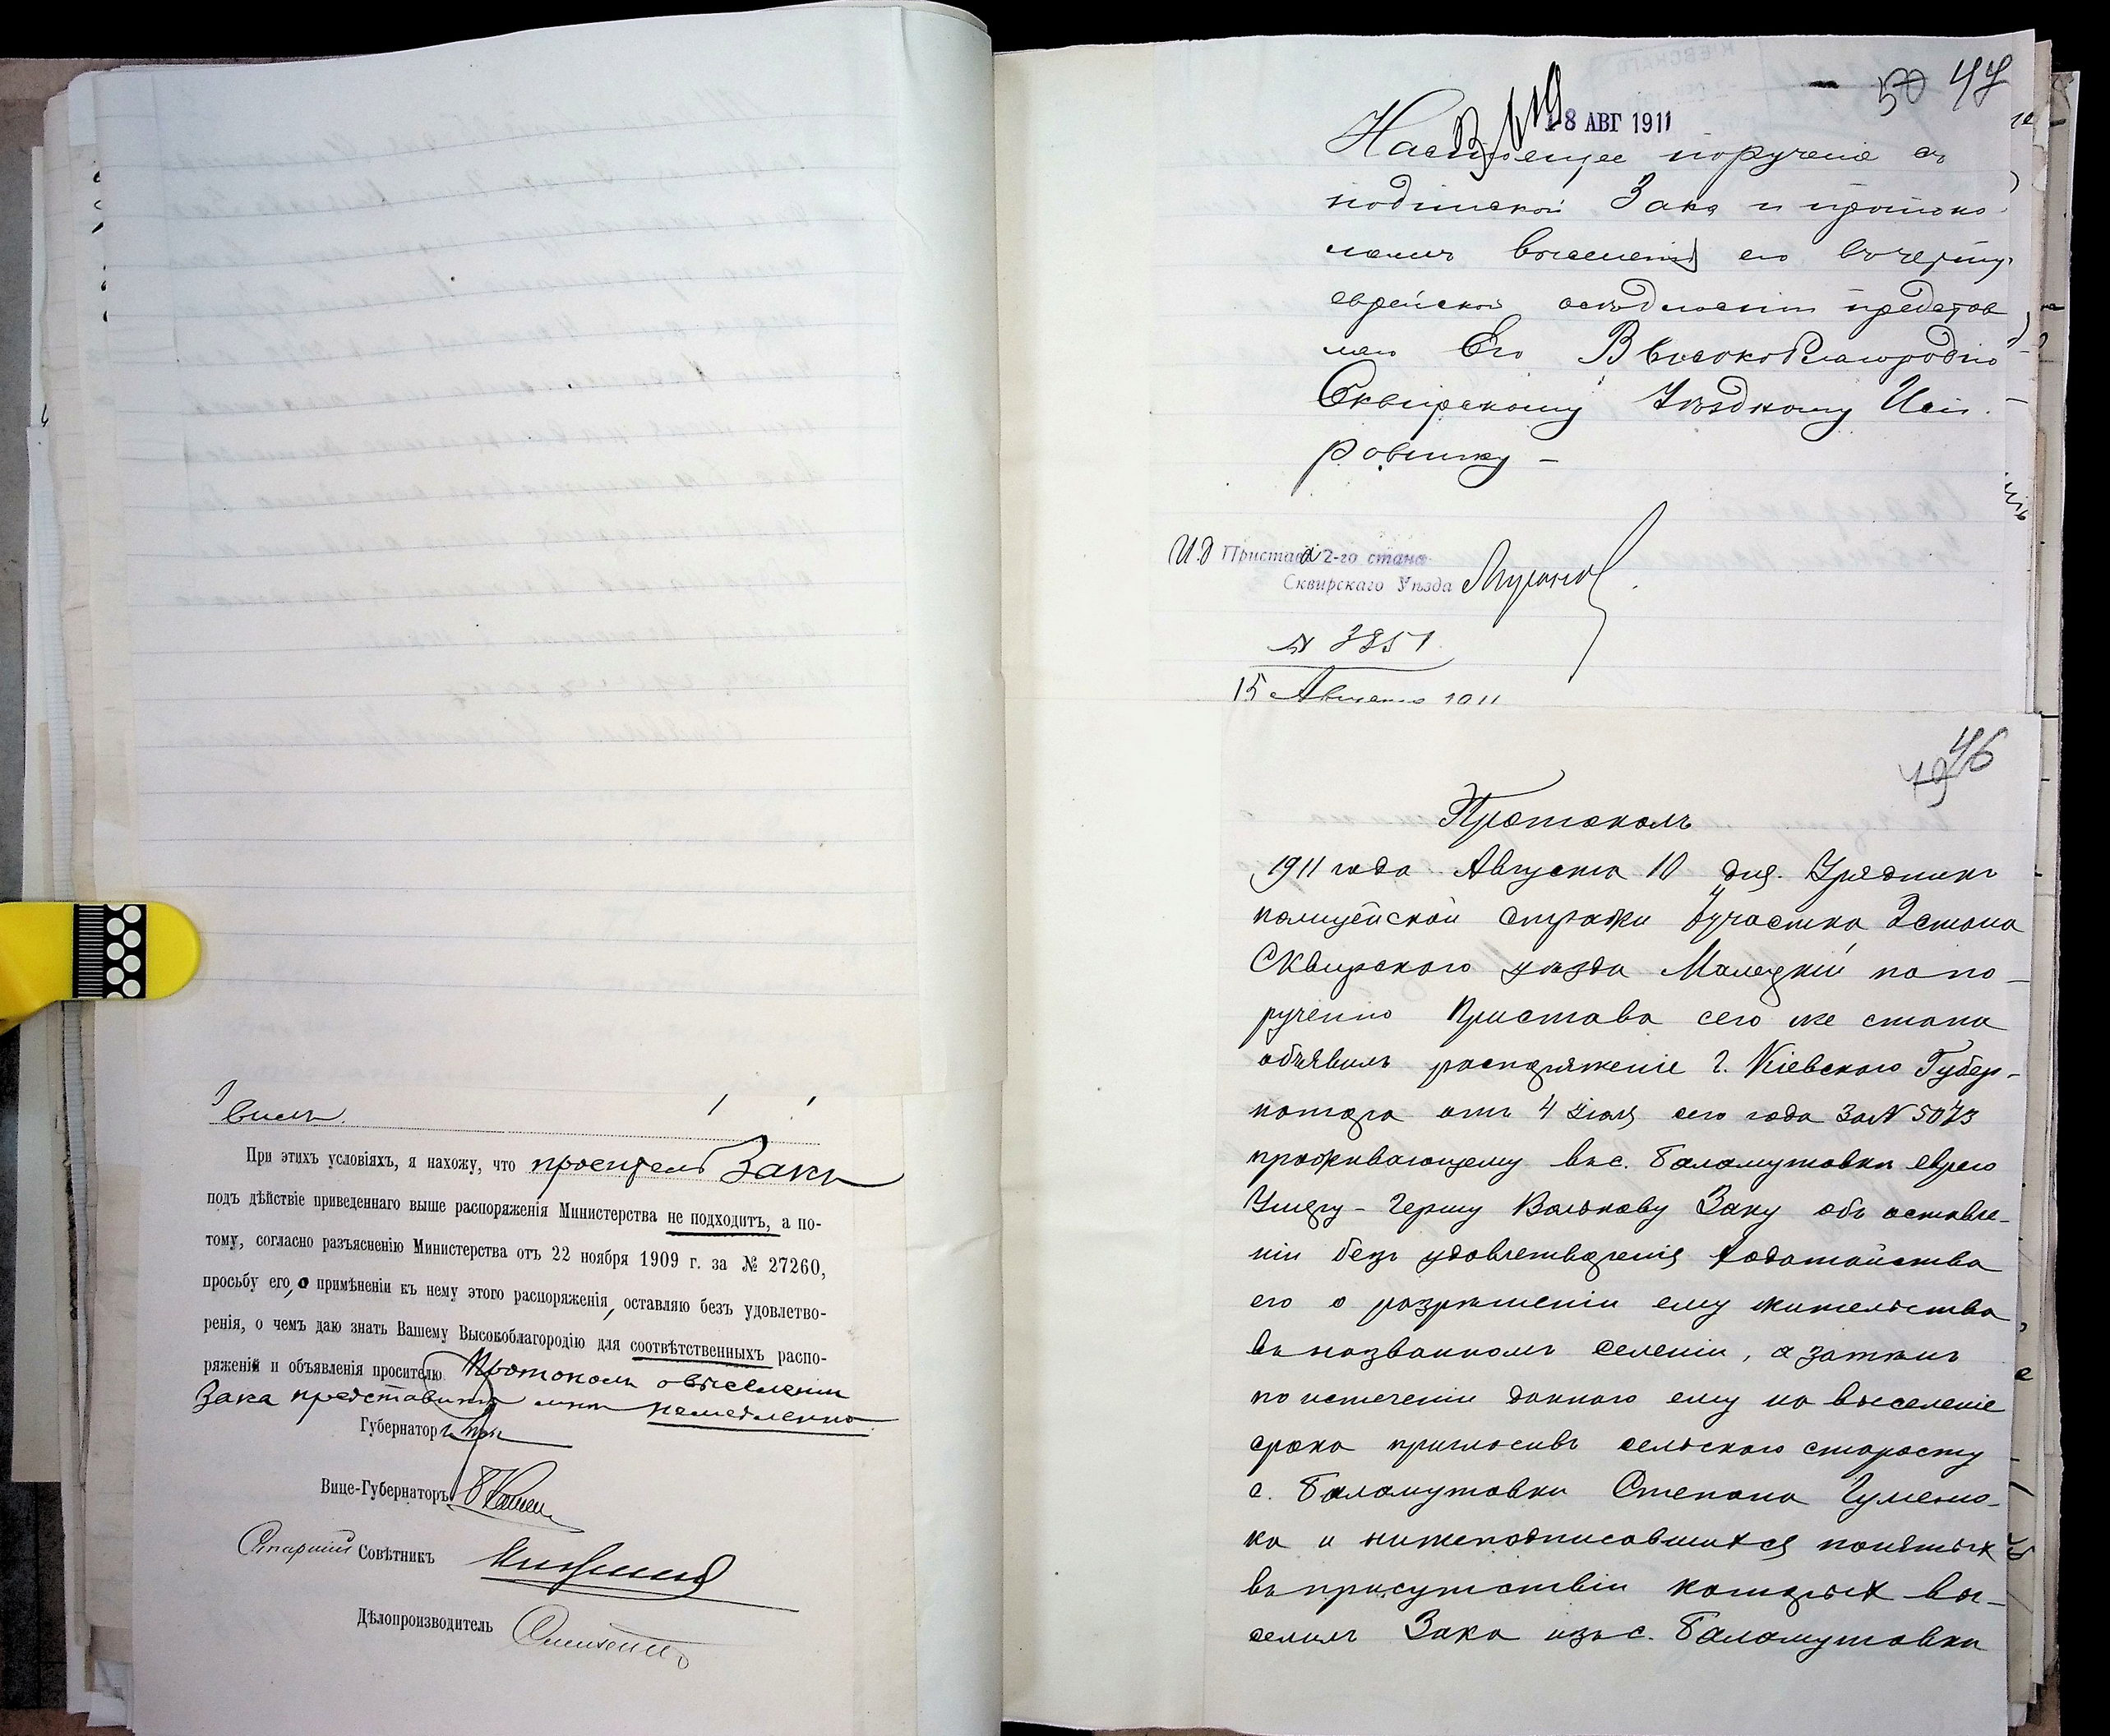 виелъ.
При этихъ условіяхъ, я нахожу, что проситель Закъ
подъ дѣйствіе приведеннаго выше распоряженія Министерства не подходитъ, а по-
тому, согласно разъясненію Министерства отъ 22 ноября 1909 г. за № 27260,
просьбу его, о примѣненіи къ нему этого распоряженія, оставляю безъ удовлетво-
ренія, о чемъ даю знать Вашему Высокоблагородію для соотвѣтственныхъ распо-
ряженій и объявленія просителю. Протоколъ о выселеніи
Зака представить мнѣ немедленно
Губернаторъ
Вице-Губернаторъ
Старшій Совѣтникъ
Дѣлопроизводитель
50 47
8 АВГ 1911
Настоящее порученіе съ
подпиской Зака и протоко
ломъ выселенія его въ черту
еврейской осѣдлости представ
ляю Его Высокоблагородію
Сквирскому Уѣздному Исп
равнику –
И.д Пристава 2-го стана
Сквирскаго Уѣзда
№ 3851
15 Августа 1911
46
49
Протоколъ
1911 года Августа 10 дня. Урядникъ
полицейской стражи участка 2 стана
Сквирскаго уѣзда Малецкій по по-
рученію Пристава сего же стана
объявилъ распоряженіе г. Кіевскаго Губер-
натора отъ 4 Іюля сего года за № 5073
проживающему въ с. Баламутовкѣ еврею
Умеру-Гершу Волькову Заку объ оставле-
ніи безъ удовлетворенія ходатайства
его о разрѣшеніи ему жительства
въ названномъ селеніи, а затѣмъ
по истеченіи даннаго ему на выселеніе
срока пригласивъ сельскаго старосту
с. Баламутовки Степана Гуменю-
ка и нижеподписавшихся понятыхъ
въ присутствіи которыхъ вы-
селилъ Зака изъ с. Баламутовки